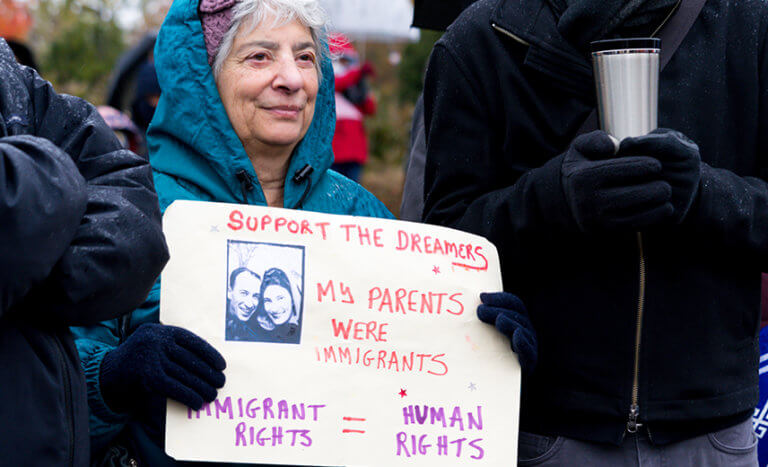 SUPPORT THE DREAMERS
MY PARENTS
WERE
IMMIGRANTS
IMMIGRANT
RIGHTS
=
HUMAN
RIGHTS